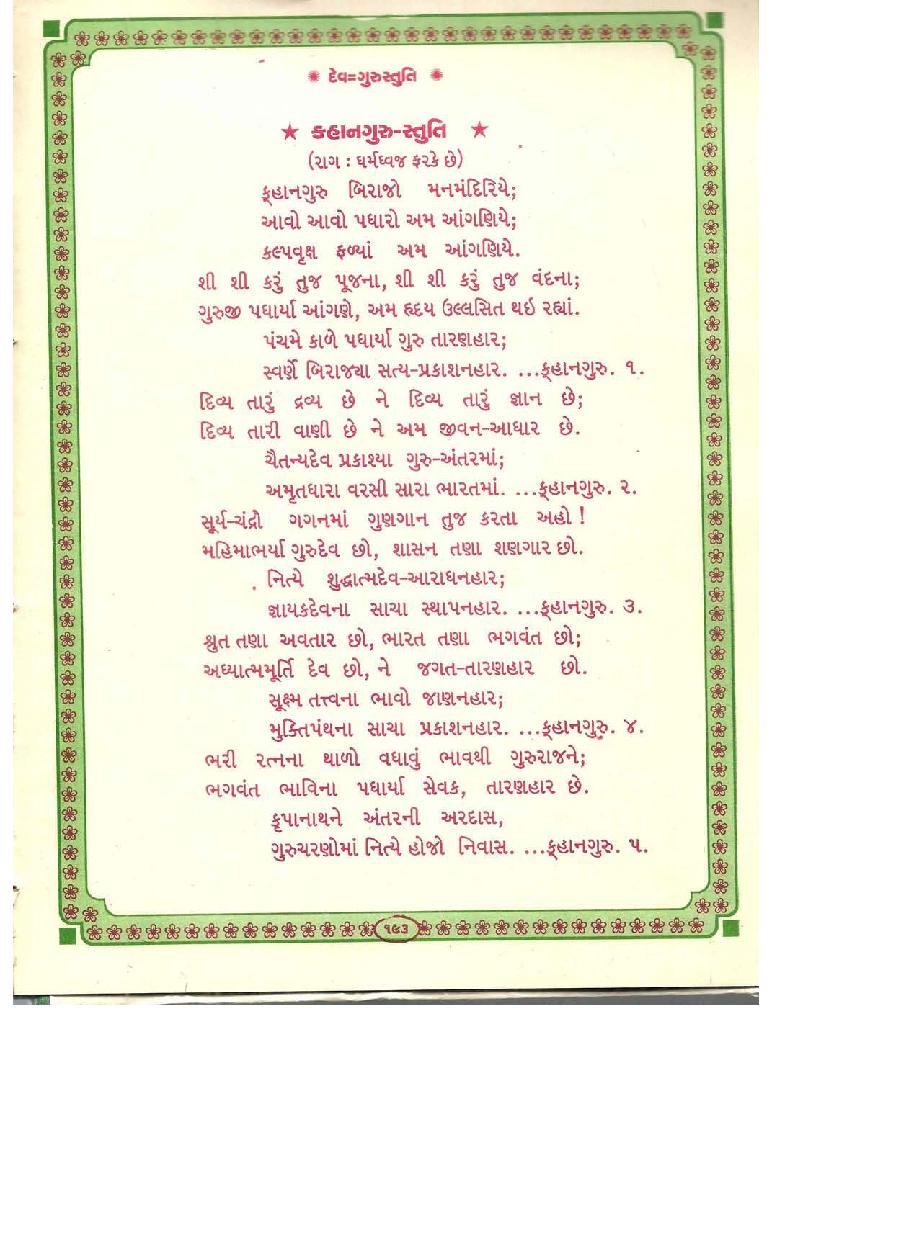 દેવ=ગુરુસ્તુતિ
કહાનગુરુ-સ્તુતિ
(રાગ : ધર્મધ્વજ ફરકે છે)
ક્‌હાનગુરુ બિરાજો મનમંદિરિયે;
આવો આવો પધારો અમ આંગણિયે;
કલ્પવૃક્ષ ફળ્યાં અમ આંગણિયે.
શી શી કરું તુજ પૂજના, શી શી કરું તુજ વંદના;
ગુરુજી પધાર્યા આંગણે, અમ હૃદય ઉલ્લસિત થઇ રહ્યાં.
પંચમે કાળે પધાર્યા ગુરુ તારણહાર;
સ્વર્ણે બિરાજ્યા સત્ય-પ્રકાશનહાર. ...ક્‌હાનગુરુ. ૧.
દિવ્ય તારું દ્રવ્ય છે ને દિવ્ય તારું જ્ઞાન છે;
દિવ્ય તારી વાણી છે ને અમ જીવન-આધાર છે.
ચૈતન્યદેવ પ્રકાશ્યા ગુરુ-અંતરમાં;
અમૃતધારા વરસી સારા ભારતમાં. ...ક્‌હાનગુરુ. ૨.
સૂર્ય-ચંદ્રો ગગનમાં ગુણગાન તુજ કરતા અહો !
મહિમાભર્યા ગુરુદેવ છો, શાસન તણા શણગાર છો.
નિત્યે શુદ્ધાત્મદેવ-આરાધનહાર;
જ્ઞાયકદેવના સાચા સ્થાપનહાર. ...ક્‌હાનગુરુ. ૩.
શ્રુત તણા અવતાર છો, ભારત તણા ભગવંત છો;
અધ્યાત્મમૂર્તિ દેવ છો, ને જગત-તારણહાર છો.
સૂક્ષ્મ તત્ત્વના ભાવો જાણનહાર;
મુક્તિપંથના સાચા પ્રકાશનહાર. ...ક્‌હાનગુરુ. ૪.
ભરી રત્નના થાળો વધાવું ભાવથી ગુરુરાજને;
ભગવંત ભાવિના પધાર્યા સેવક, તારણહાર છે.
કૃપાનાથને અંતરની અરદાસ,
ગુરુચરણોમાં નિત્યે હોજો નિવાસ. ...ક્‌હાનગુરુ. ૫.
૧૯૩